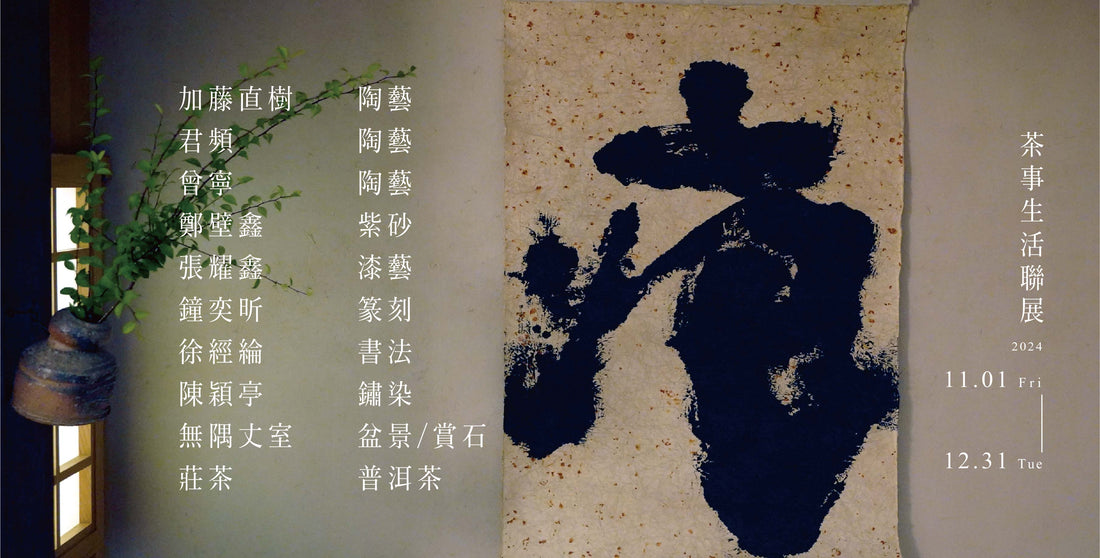 加藤直樹 陶藝
君頻 陶藝
曾寧 陶藝
鄭壁鑫 紫砂
張耀鑫 漆藝
鐘奕昕 篆刻
徐經綸 書法
陳穎亭 鏽染
無隅丈室 盆景/賞石
莊茶 普洱茶
茶事生活聯展
2024
11.01 Fri
12.31 Tue